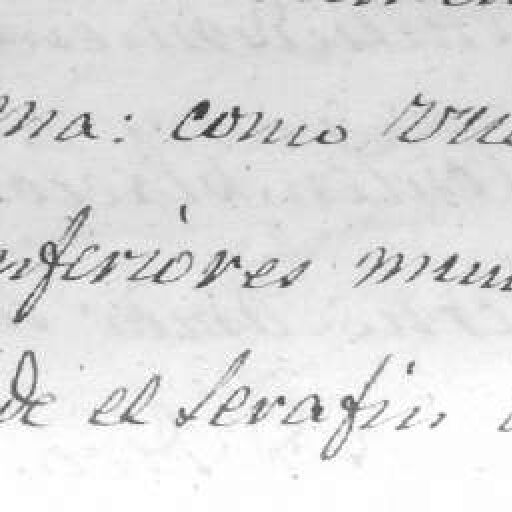 ena: como
inferiores mun
de el Serafin